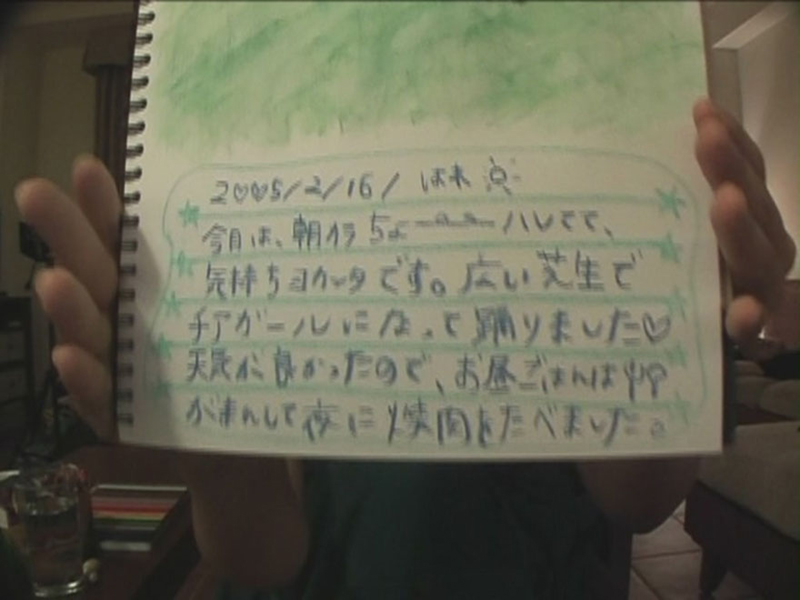 2♡♡5/2/16/ はれ
今日は、朝から ちょーーーハレてて、
気持ちヨカッタです。広い芝生で
チアガールになって踊りました♡
天気が良かったので、お昼ごはんは
がまんして夜に焼肉をたべました。